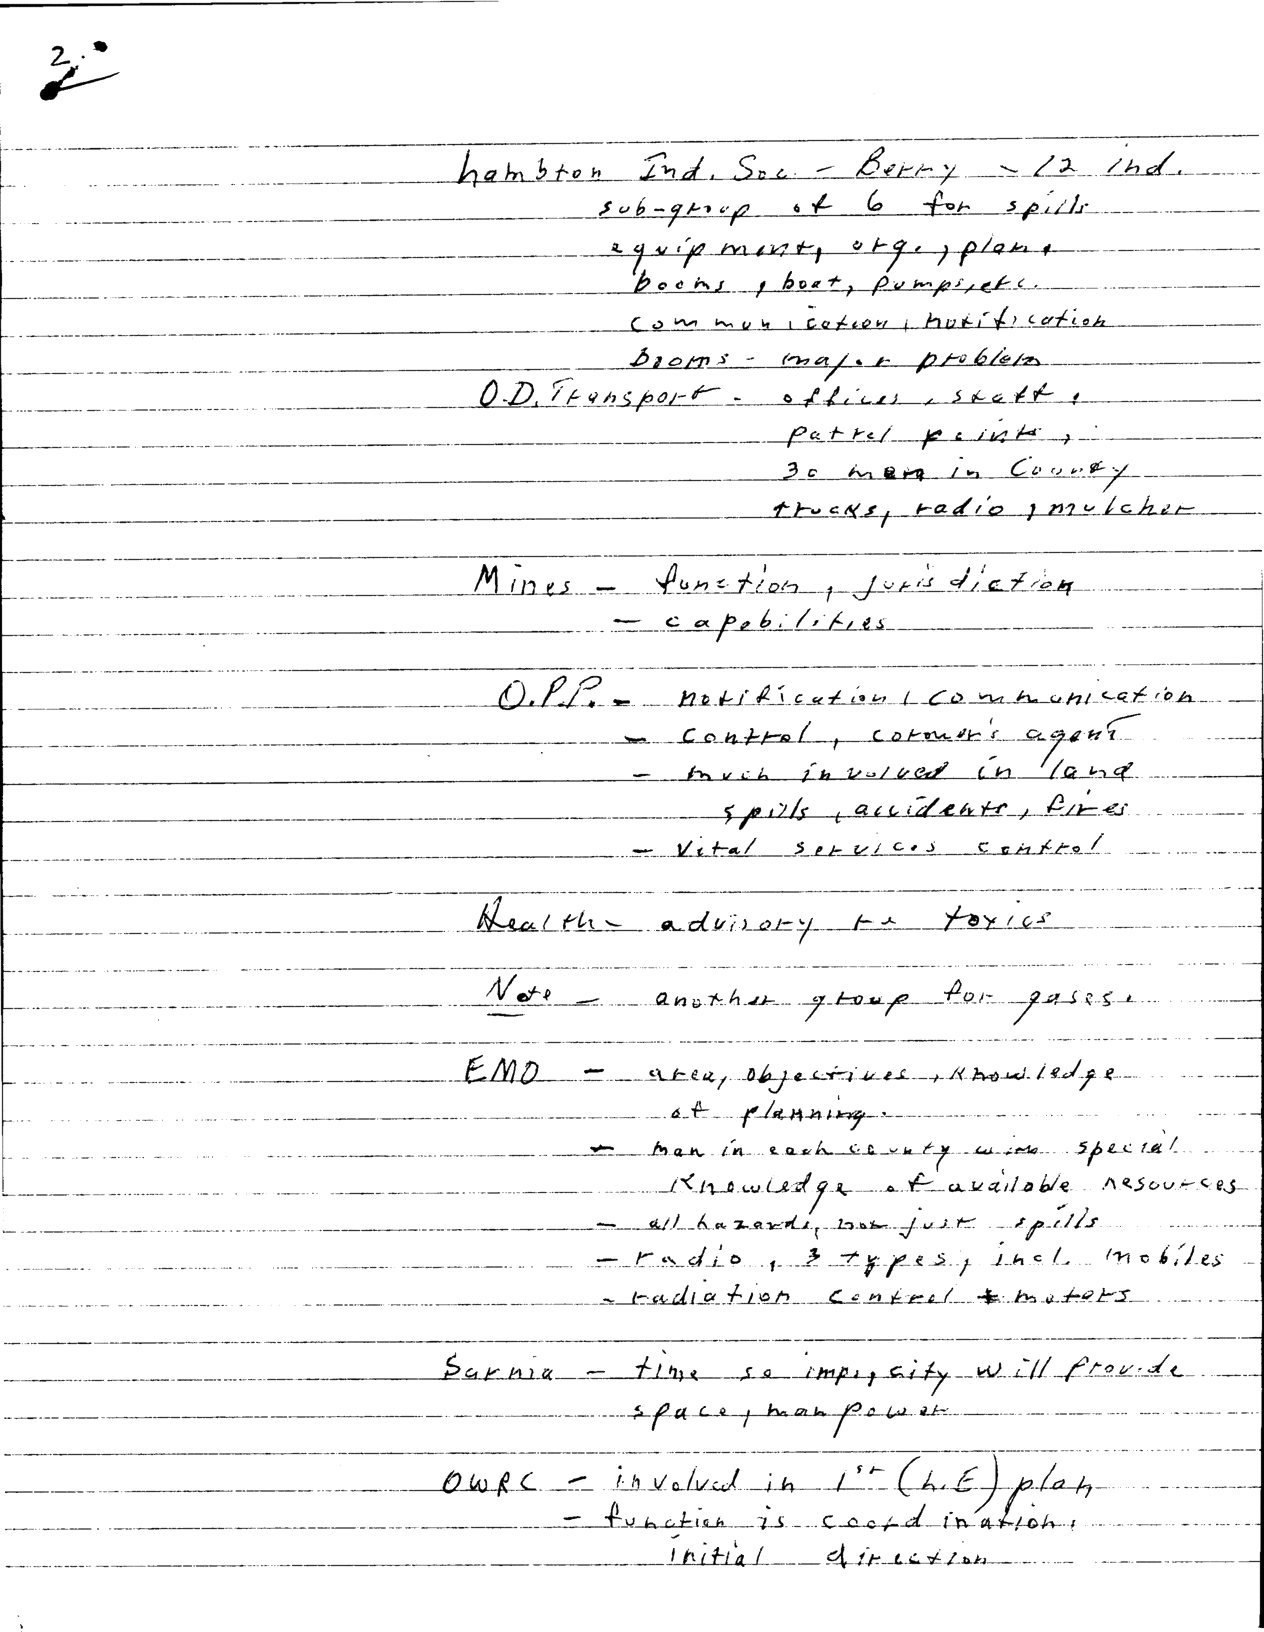 2.
Lambton Ind. Soc. - Berry - 12 ind.
sub-group of 6 for spills
equipment, org., plan,
booms, boat, pumps, etc.
communication, notification
booms - major problem
O.D. Transport - offices, staff,
patrol points,
30 men in County
trucks, radio, mulcher
Mines - function, jurisdiction
- capabilities
O.P.P. - notification, communication
- control, coroner's agent
- much involved in land
spills, accidents, fires
- Vital services control
Health - advisory re toxics
Note - another group for gases.
EMO - area, objectives, knowledge
of planning.
- man in each county with special
knowledge of available resources
- all hazards, not just spills
- radio, 3 types, incl. mobiles
- radiation control + motors
Sarnia - time so imp., city will provide
space, manpower
OWRC - involved in 1st (L.E) plan
- function is coordination,
initial direction